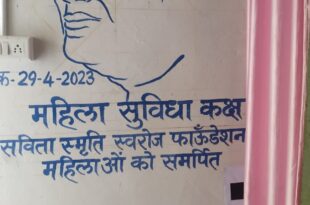 क-29-4-2023
महिला सुविधा कक्ष
सविता स्मृति स्वरोज फाऊँडेशन
महिलाओं को समर्पित